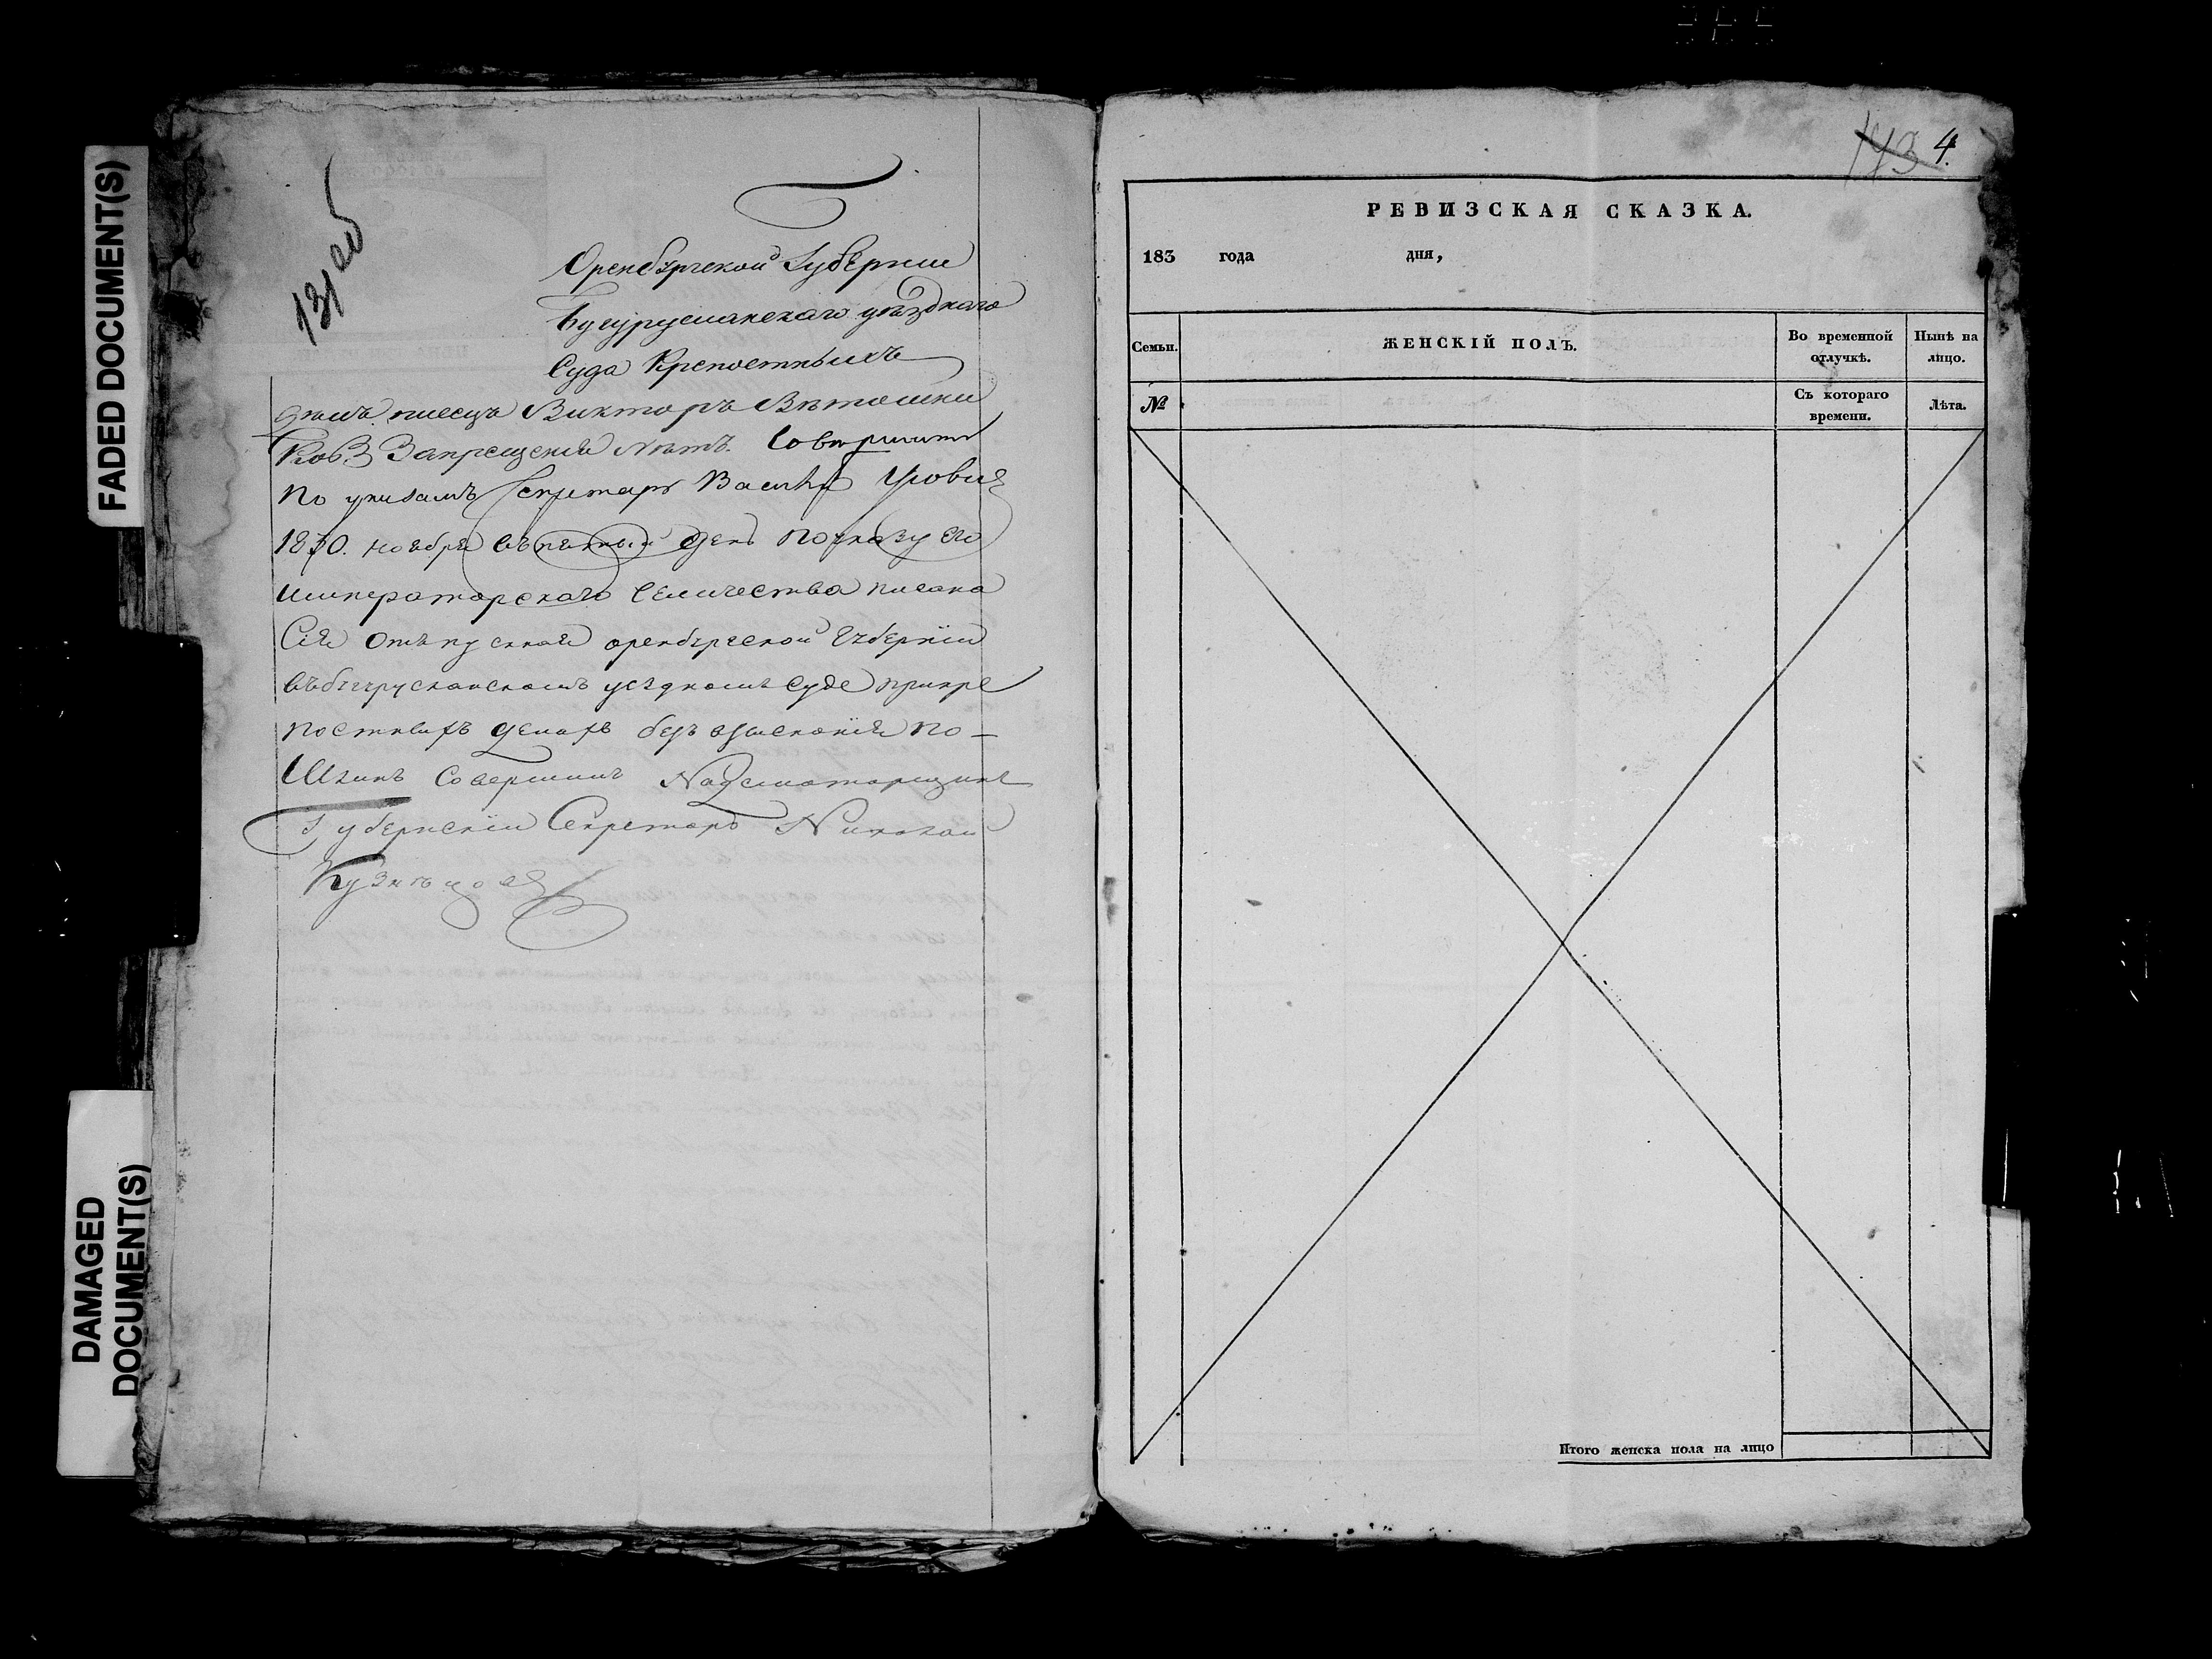 FADED DOCUMENT(S)
DAMAGED
DOCUMENT(S)
131 об
Оренбургской Губернии
Бугурусланскаго уѣзднаго
Суда Крепостныхъ
дѣлъ писецъ Викторъ Вѣтошни
ковъ Запрещения Нѣтъ. Совершить
по указамъ Секретарь Василий
1830. ноября въ пятый день По указу Его
императорскаго величества писана
Сія отпускная оренбургской Губерніи
въ бугурусланскомъ уездномъ суде при кре
постныхъ делахъ безъ взысканія по-
шлинъ Совершилъ Надсмотрщикъ
Губернскій Секретарь Николай
Кузнѣцовъ
173 4.
РЕВИЗСКАЯ СКАЗКА.
183 года дня,
Семьи. ЖЕНСКІЙ ПОЛЪ. Во временной отлучкѣ. Нынѣ на лицо.
№ Съ котораго времени. Лѣта.
Итого женска пола на лицо